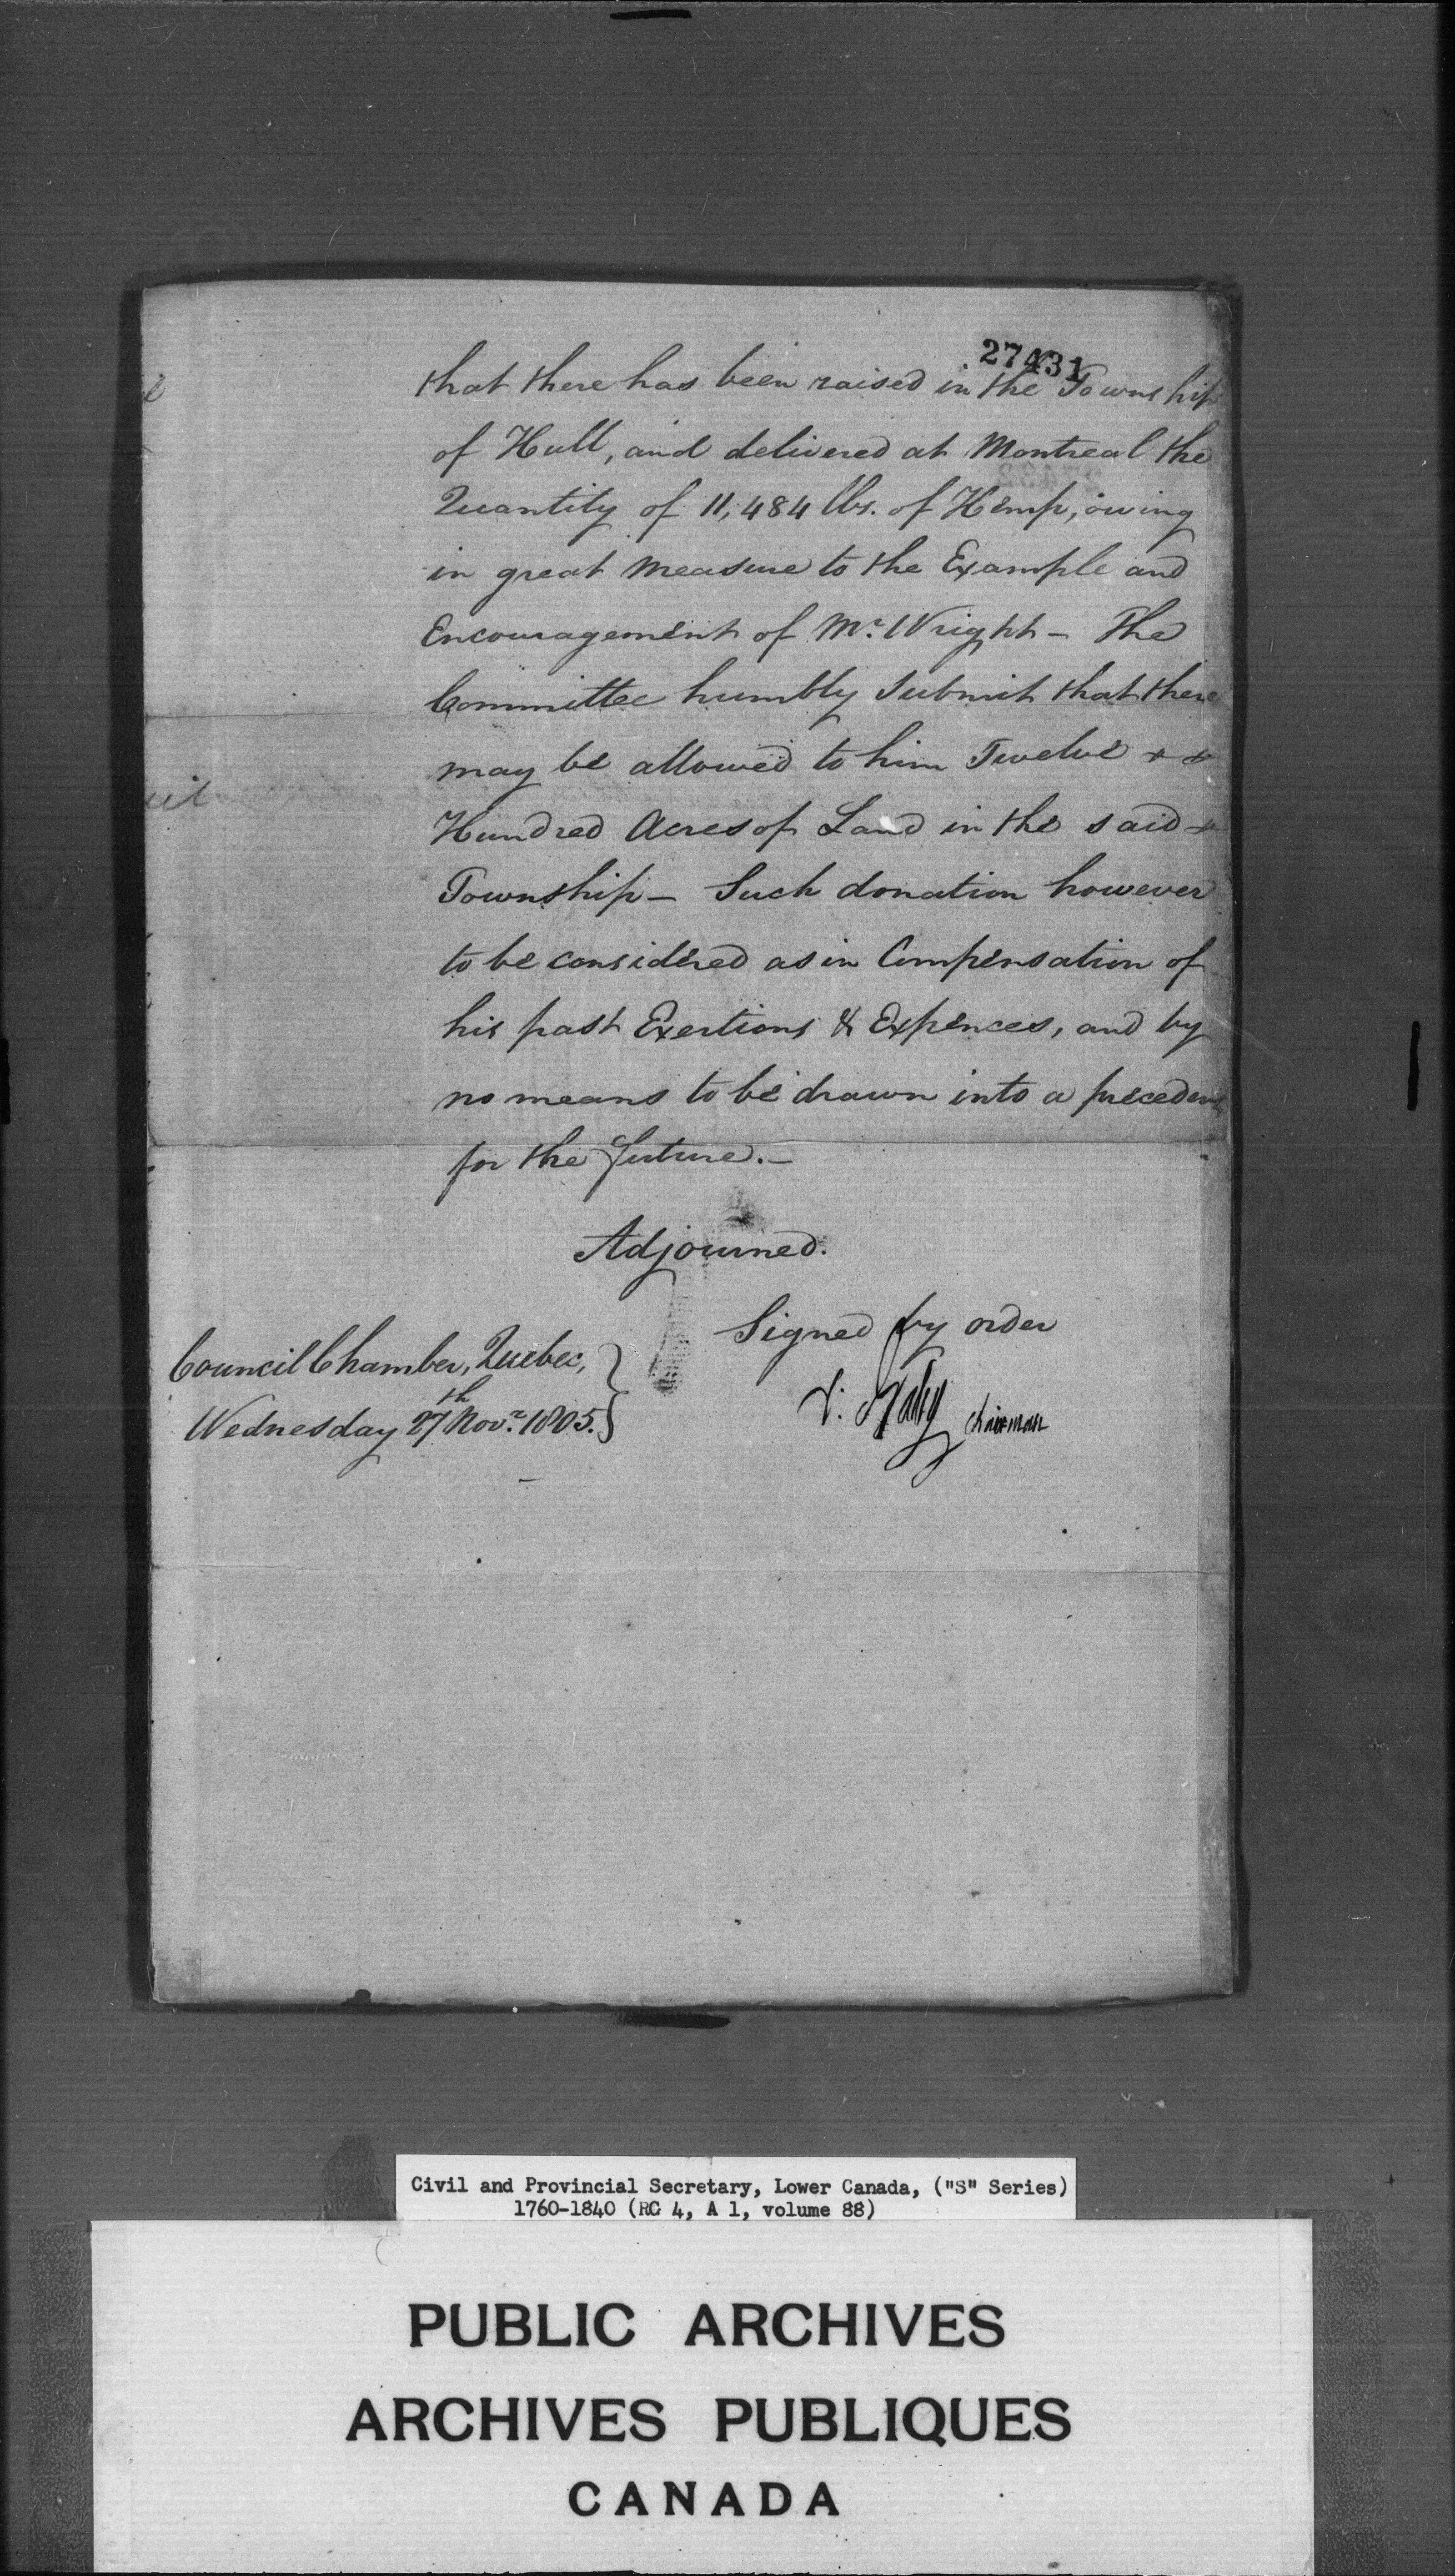 27431
that there has been raised in the Township
of Hull, and delivered at Montreal the
Quantity of 11,484 lbs. of Hemp, owing
in great measure to the Example and
Encouragement of Mr. Wright - The
Committee humbly submit that there
may be allowed to him Twelve
Hundred Acres of Land in the said
Township - Such donation however
to be considered as in Compensation of
his past Exertions & Expences, and by
no means to be drawn into a precedent
for the future. -
Adjourned.
Signed by order
Council Chamber, Quebec,
Wednesday 27th Novr. 1805.
chairman
Civil and Provincial Secretary, Lower Canada, ("S" Series)
1760-1840 (RG 4, A 1, volume 88)
PUBLIC ARCHIVES
ARCHIVES PUBLIQUES
CANADA